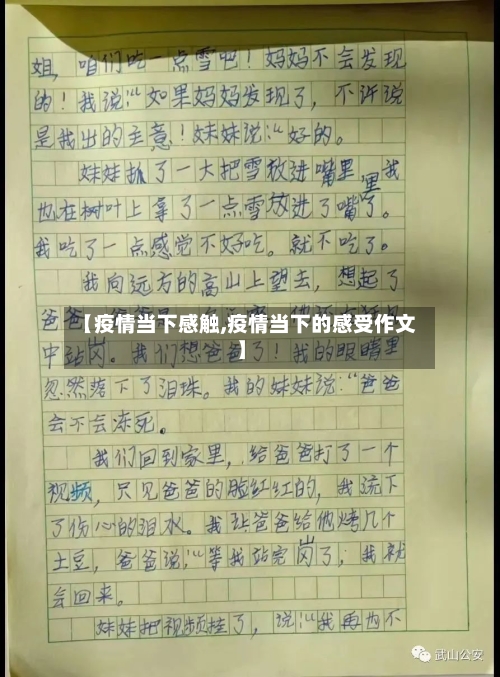 姐，咱们吃一点雪吧！妈妈不会发现
的！我说：“如果妈妈发现了，不许说
是我出的主意！妹妹说：“好的。
妹妹抓了一大把雪放进嘴里，我
也在树叶上拿了一点雪放进了嘴里。
我吃了一点感觉不好吃。就不吃了。
我向远方的高山上望去，想起了
爸爸
【疫情当下感触,疫情当下的感受作文
】
中站岗。我们想爸爸了！我的眼睛里
忽然落下了泪珠。我的妹妹说：“爸爸
会不会冻死。
我们回到家里，给爸爸打了一个
视频，只见爸爸的脸红红的，我流下
了伤心的泪水。我让爸爸给他烤几个
土豆，爸爸说：“等我站完岗了，我就
会回来。
妹妹把视频挂了，说：“我再也不
武山公安